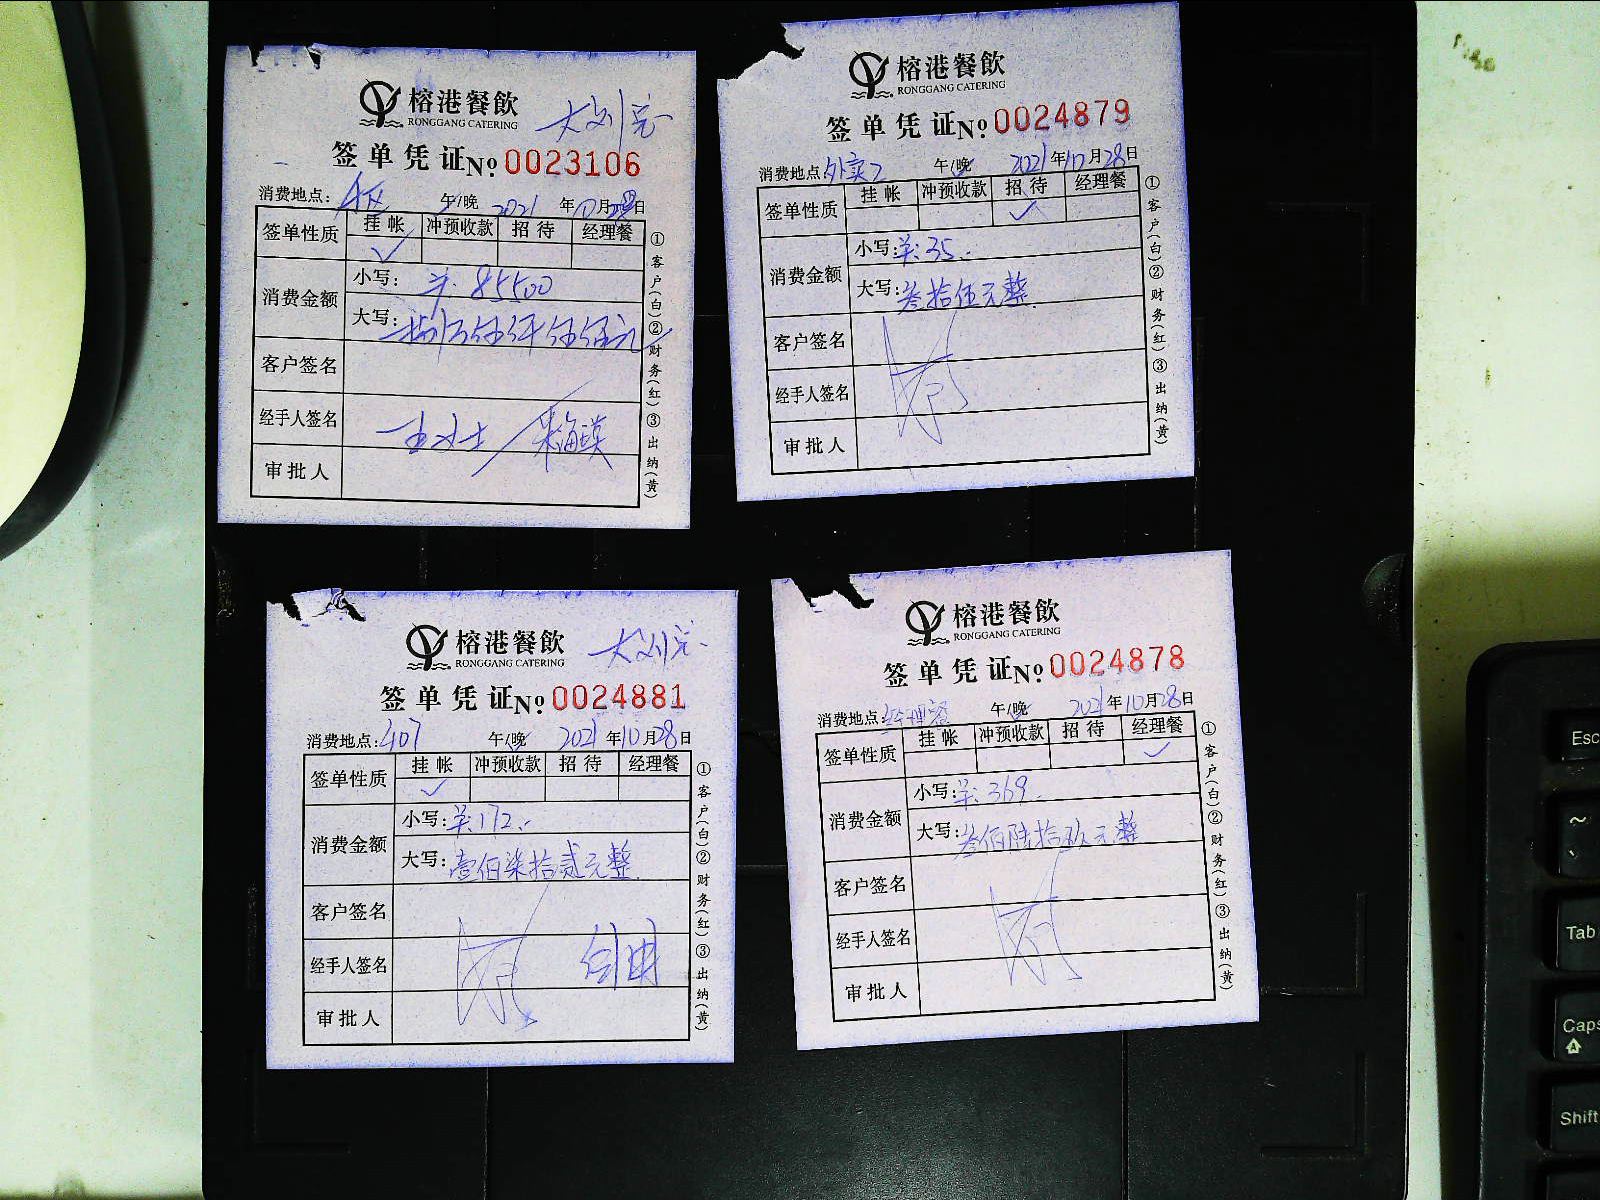 榕港餐飲
RONGGANG CATERING
签单凭证 No 0023106
消费地点: 午/晚 2021年10月28日
签单性质 挂帐 冲预收款 招待 经理餐
✓
消费金额 小写: 羊: 85500
大写:
客户签名
经手人签名
审批人
①客户(白)②财务(红)③出纳(黄)
榕港餐飲
RONGGANG CATERING
签单凭证 No 0024879
消费地点: 外卖2 午/晚 2021年10月28日
签单性质 挂帐 冲预收款 招待 经理餐
✓
消费金额 小写: 羊: 35.-
大写: 叁拾伍元整
客户签名
经手人签名
审批人
①客户(白)②财务(红)③出纳(黄)
榕港餐飲
RONGGANG CATERING
签单凭证 No 0024881
消费地点: 407 午/晚 2021年10月28日
签单性质 挂帐 冲预收款 招待 经理餐
✓
消费金额 小写: 羊: 172.-
大写: 壹佰柒拾贰元整
客户签名
经手人签名
审批人
①客户(白)②财务(红)③出纳(黄)
榕港餐飲
RONGGANG CATERING
签单凭证 No 0024878
消费地点: 经理餐 午/晚 2021年10月28日
签单性质 挂帐 冲预收款 招待 经理餐
✓
消费金额 小写: 羊: 369.-
大写: 叁佰陆拾玖元整
客户签名
经手人签名
审批人
①客户(白)②财务(红)③出纳(黄)
Esc
~
Tab
Caps
A
Shift